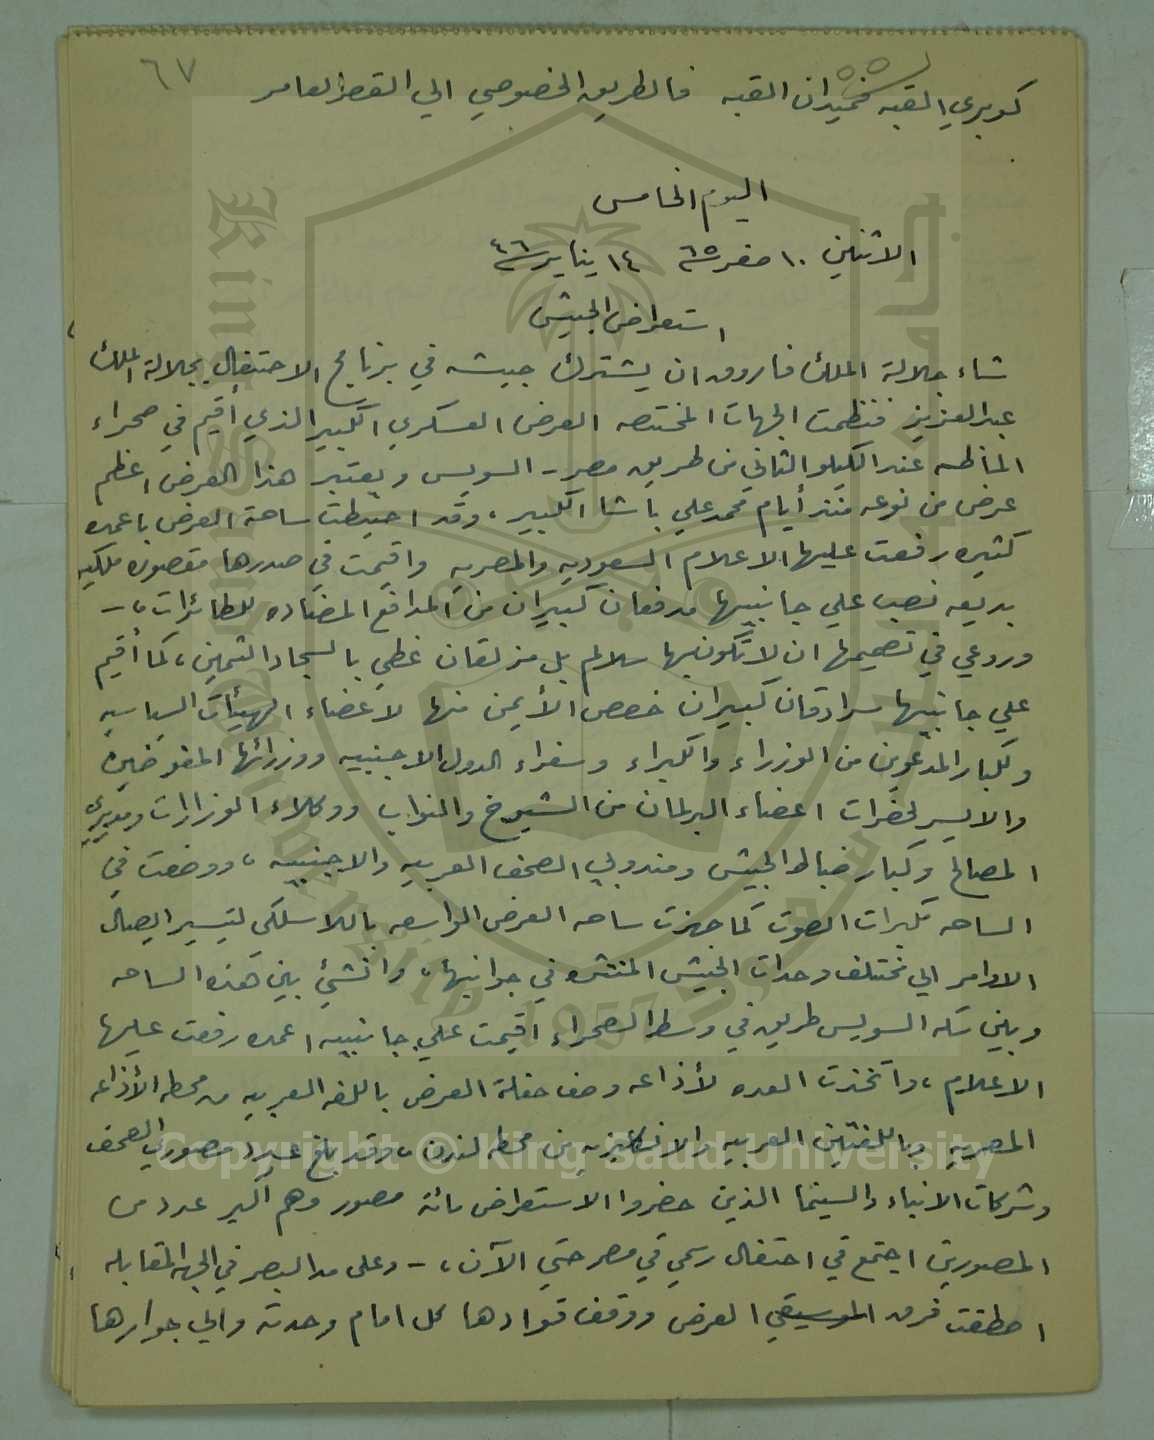 ٦٧
كوبري القبه فميدان القبه فالطريق الخصوصي الي القصر العامر
اليوم الخامس
الاثنين ١٠ صفر ٦٥ ١٤ يناير ٤٦
استعراض الجيش
شاء جلالة الملك فاروق ان يشترك جيشه في برنامج الاحتفال بجلالة الملك
عبد العزيز فنظمت الجهات المختصه العرض العسكري الكبير الذي أقيم في صحراء
الماظه عند الكيلو الثاني من طريق مصر - السويس ويعتبر هذا العرض اعظم
عرض من نوعه منذ أيام محمد علي باشا الكبير، وقد احيطت ساحة العرض باعمده
كثيره رفعت عليها الاعلام السعوديه والمصريه واقيمت في صدرها مقصوره ملكيه
بديعه نصب علي جانبيها مدفعان كبيران من المدافع المضاده للطائرات، -
وروعي في تصميمها ان لا تكون بها سلالم بل مزلقان غطي بالسجاد الثمين، كما أقيم
علي جانبيها سرادقان كبيران خصص الأيمن منها لاعضاء الهيئات السياسيه
ولكبار المدعوين من الوزراء والكبراء وسفراء الدول الاجنبيه ووزرائها المفوضين
والايسر لحضرات اعضاء البرلمان من الشيوخ والنواب ووكلاء الوزارات ومديري
المصالح وكبار ضباط الجيش ومندوبي الصحف العربيه والاجنبيه، ووضعت في
الساحه مكبرات الصوت كما جهزت ساحه العرض الواسعه باللاسلكى لتيسير ايصال
الاوامر الي مختلف وحدات الجيش المنتشره في جوانبها، وانشئ بين هذه الساحه
وبين سكه السويس طريق في وسط الصحراء اقيمت علي جانبيه اعمده رفعت عليها
الاعلام، واتخذت العده لأذاعه وصف حفلة العرض باللغه العربيه من محطه الأذاعه
المصريه وباللغتين العربيه والانكليزيه من محطه لندن، وقد بلغ عدد مصوري الصحف
وشركات الانباء والسينما الذين حضروا الاستعراض مائة مصور وهم أكبر عدد من
المصورين اجتمع في احتفال رسمي في مصر حتي الآن، - وعلى مد البصر في الجهه المقابله
اصطفت فرق الموسيقي العرض ووقف قوادها كل امام وحدته والي جوارها
Copyright © King Saud University
King Saud University
1957